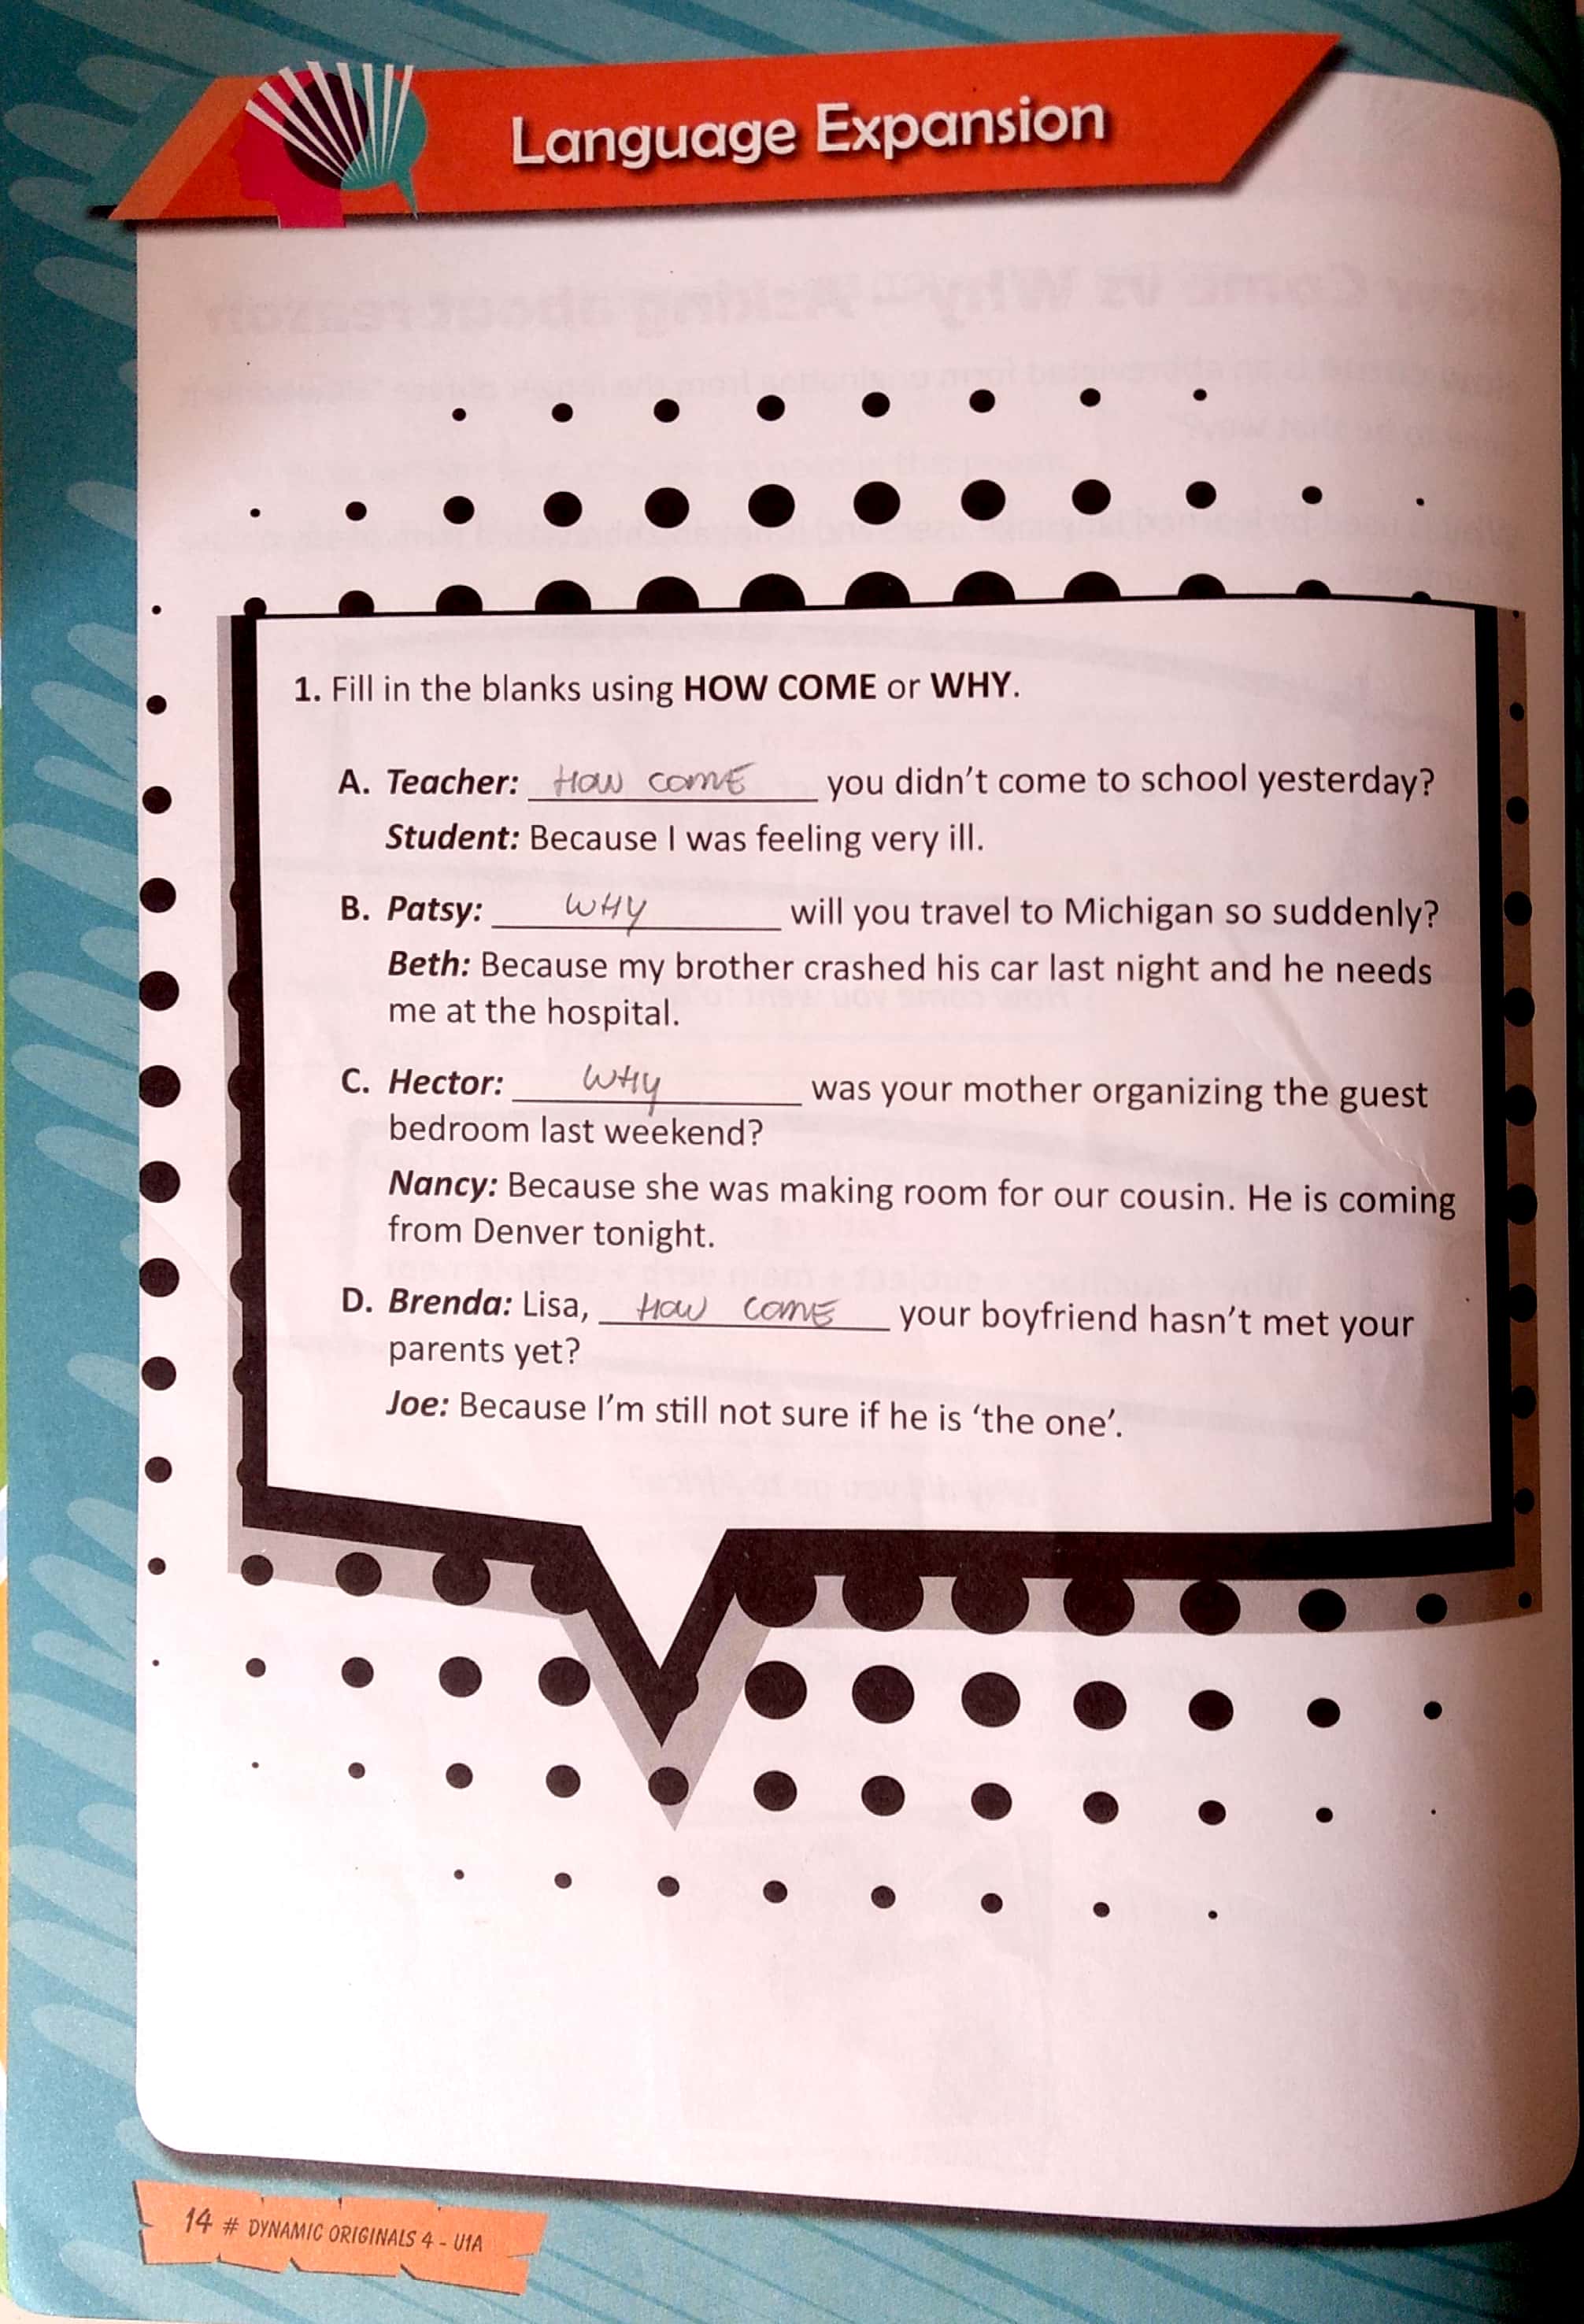 Language Expansion
1. Fill in the blanks using HOW COME or WHY.
A. Teacher: HOW COME you didn't come to school yesterday?
Student: Because I was feeling very ill.
B. Patsy: WHY will you travel to Michigan so suddenly?
Beth: Because my brother crashed his car last night and he needs
me at the hospital.
C. Hector: WHY was your mother organizing the guest
bedroom last weekend?
Nancy: Because she was making room for our cousin. He is coming
from Denver tonight.
D. Brenda: Lisa, HOW COME your boyfriend hasn't met your
parents yet?
Joe: Because I'm still not sure if he is 'the one'.
14 # DYNAMIC ORIGINALS 4 - U1A